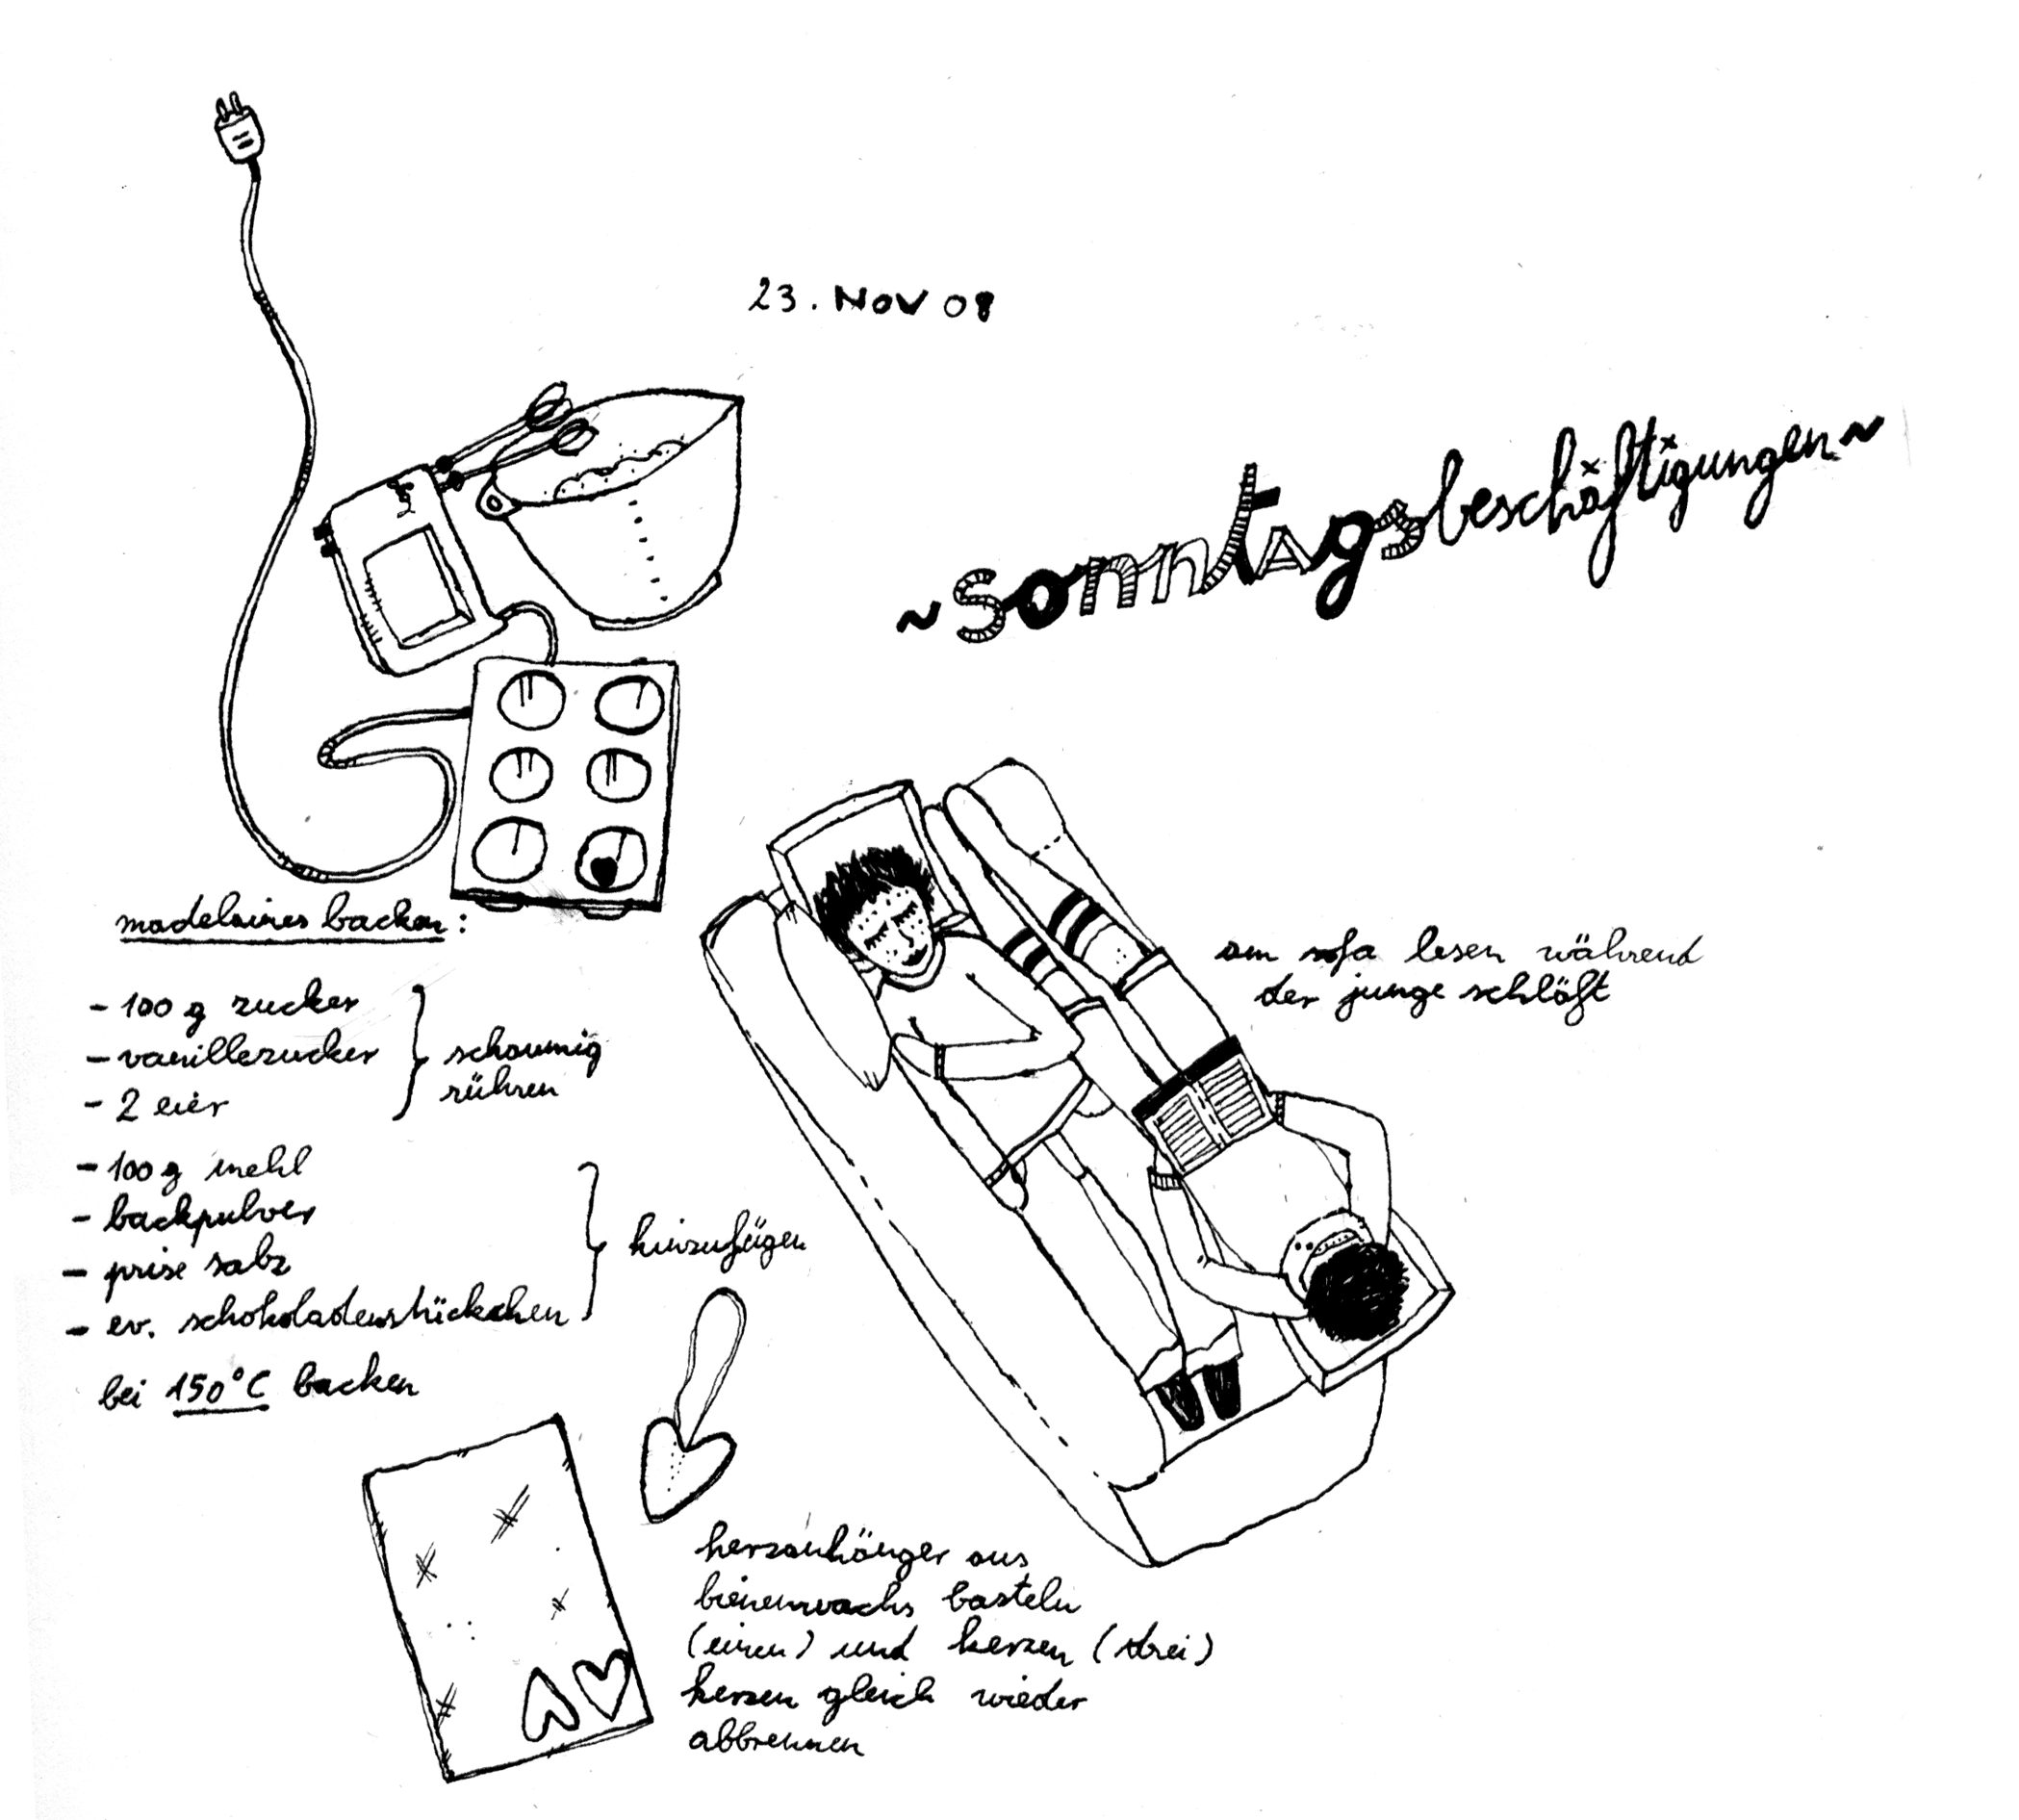 23. NOV 08
~sonntagsbeschäftigungen~
madeleines backen:
- 100 g zucker
- vanillezucker
- 2 eier
schaumig
rühren
- 100 g mehl
- backpulver
- prise salz
- ev. schokoladenstückchen
hinzufügen
bei 150°C backen
am sofa lesen während
der junge schläft
herzanhänger aus
bienenwachs basteln
(einen) und kerzen (drei)
kerzen gleich wieder
abbrennen